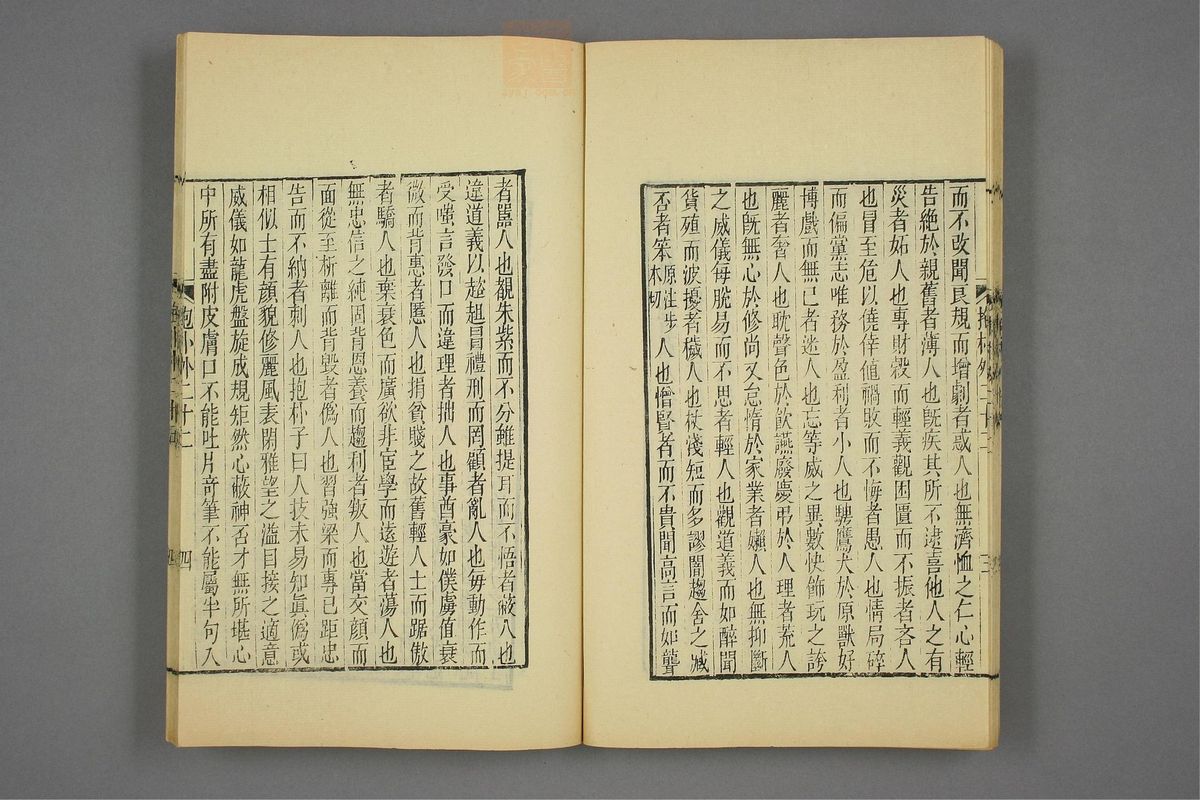 而不改聞良規而增劇者惑人也無濟恤之仁心輕
告絕於親舊者薄人也既疾其所不逮喜他人之有
災者妬人也專財穀而輕義觀困匱而不振者吝人
也冒至危以僥倖值禍敗而不悔者愚人也情局碎
而偏黨志唯務於盈利者小人也騁鷹犬於原獸好
博戲而無已者迷人也忘等威之異數快飾玩之誇
麗者奢人也耽聲色於飲讌廢慶弔於人理者荒人
也既無心於修尚又怠惰於家業者嬾人也無抑斷
之威儀每脫易而不思者輕人也觀道義而如醉聞
貨殖而波擾者穢人也杖淺短而多謬闇趨舍之臧
否者笨原注步本切人也憎賢者而不貴聞高言而如聾
者嚚人也覩朱紫而不分雖提耳而不悟者蔽人也
違道義以趑趄冒禮刑而罔顧者亂人也每動作而
受嗤言發口而違理者拙人也事酋豪如僕虜值衰
微而背惠者慝人也捐貧賤之故舊輕人士而踞傲
者驕人也棄衰色而廣欲非宦學而遠遊者蕩人也
無忠信之純固背恩養而趨利者叛人也當交顏而
面從至析離而背毀者僞人也習強梁而專己距忠
告而不納者刺人也抱朴子曰人技未易知眞僞或
相似士有顏貌修麗風表閑雅望之溢目接之適意
威儀如龍虎盤旋成規矩然心蔽神否才無所堪心
中所有盡附皮膚口不能吐片奇筆不能屬半句入
抱朴外二十二
四